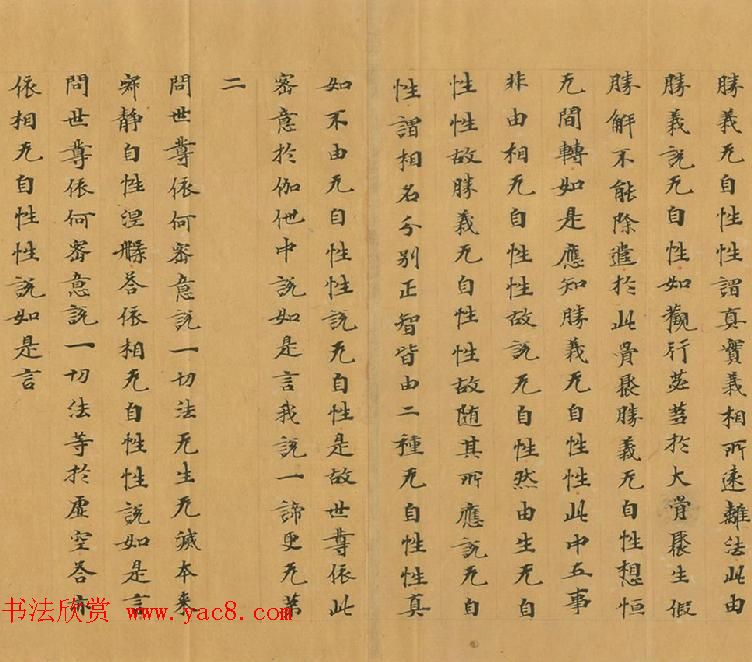 勝義无自性性謂真實義相所遠離法此由
勝義說无自性如觀行苾芻於大骨聚生假
勝解不能除遣於此骨聚勝義无自性想恒
无間轉如是應知勝義无自性性此中五事
非由相无自性性故說无自性然由生无自
性性故勝義无自性性故隨其所應說无自
性謂相名分別正智皆由二種无自性性真
如不由无自性性說无自性是故世尊依此
密意於伽他中說如是言我說一諦更无第
二
問世尊依何密意說一切法无生无滅本来
寂靜自性涅槃答依相无自性性說如是言
問世尊依何密意說一切法等於虛空答亦
依相无自性性說如是言
书法欣赏 www.yac8.com